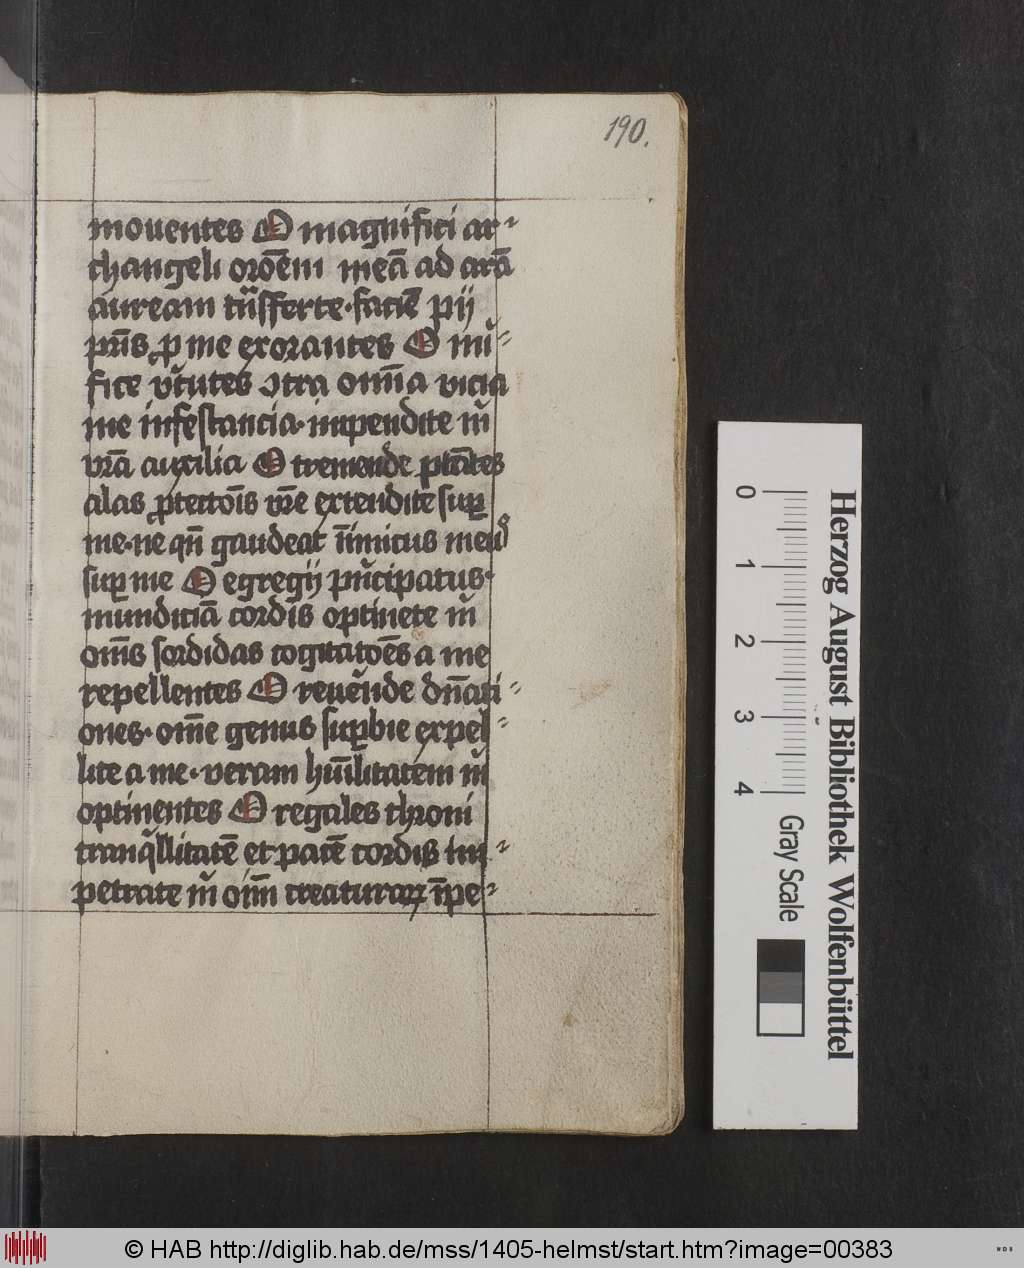 190.
moventes O magnifici ar⸗
changeli oroẽm meã ad arã
auream trãsferte · faciẽ pij
prĩs ꝓ me exorantes O mi⸗
fice v̉tutes ɔtra om̃ia vicia
me infestancia · impendite m̉
vr̃ã auxilia O tremende pt̃ates
alas ꝓtectoĩs vr̃e extendite suꝑ
me · ne qñ gaudeat ĩimicus meuꝰ
suꝑ me O egregij pn̉cipatus ·
mundiciã cordis optinete m̉
om̃s sordidas cogitatoẽs a me
repellentes O reuẽnde dñaci⸗
ones · om̃e genus suꝑbie expel⸗
lite a me · veram hũilitatem m̉
optinentes O regales throni
tranq̉llitatẽ et pacẽ cordis im⸗
petrate m̉ oĩm creaturaꝝ ĩpe⸗
Herzog August Bibliothek Wolfenbüttel
0 1 2 3 4
Gray Scale
© HAB http://diglib.hab.de/mss/1405-helmst/start.htm?image=00383